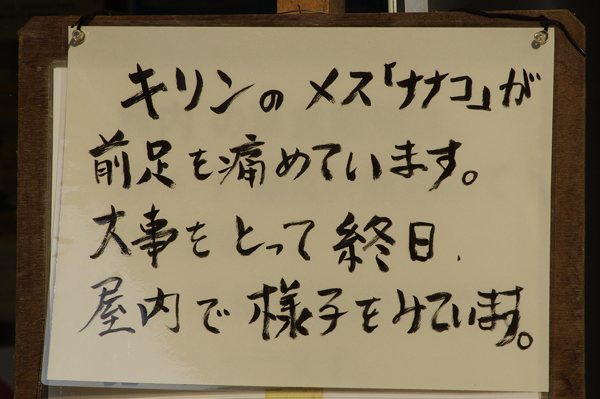 キリンのメス「ナナコ」が
前足を痛めています。
大事をとって終日、
屋内で様子をみています。